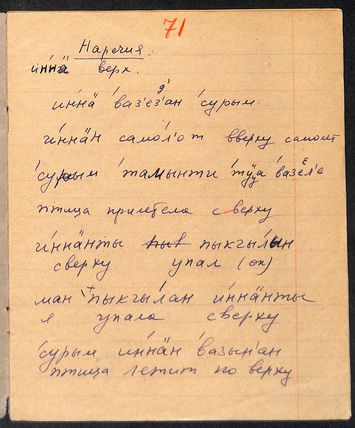 71
Наречия.
и́ннӓ верх.
и́ннӓ ва́з'ез'ан су́рым
и́ннӓн самол'от вверху самолет
су́рым та́мынти тӱ́уа ва́з'ел'е
птица прилетела с верху
и́ннӓнты пыкгы́лын
сверху упал (он)
ман пыкгы́лан и́ннӓнты
я упала сверху
су́рым и́ннӓн ва́зын'ан
птица летит по верху